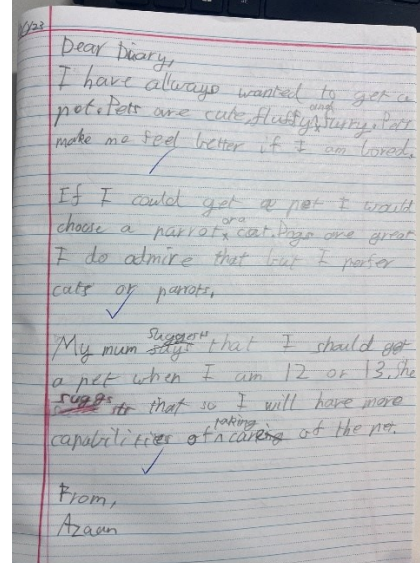 /23
Dear Diary,
I have allways wanted to get a
pet. Pets are cute, fluffy and furry. Pets
make me feel better if I am bored.
If I could get a pet I would
choose a parrot or a cat. Dogs are great
I do admire that but I perfer
cats or parrots.
My mum says suggests that I should get
a pet when I am 12 or 13. She
suggs sts that so I will have more
capabilities of taking caring of the pet.
From,
Azaan